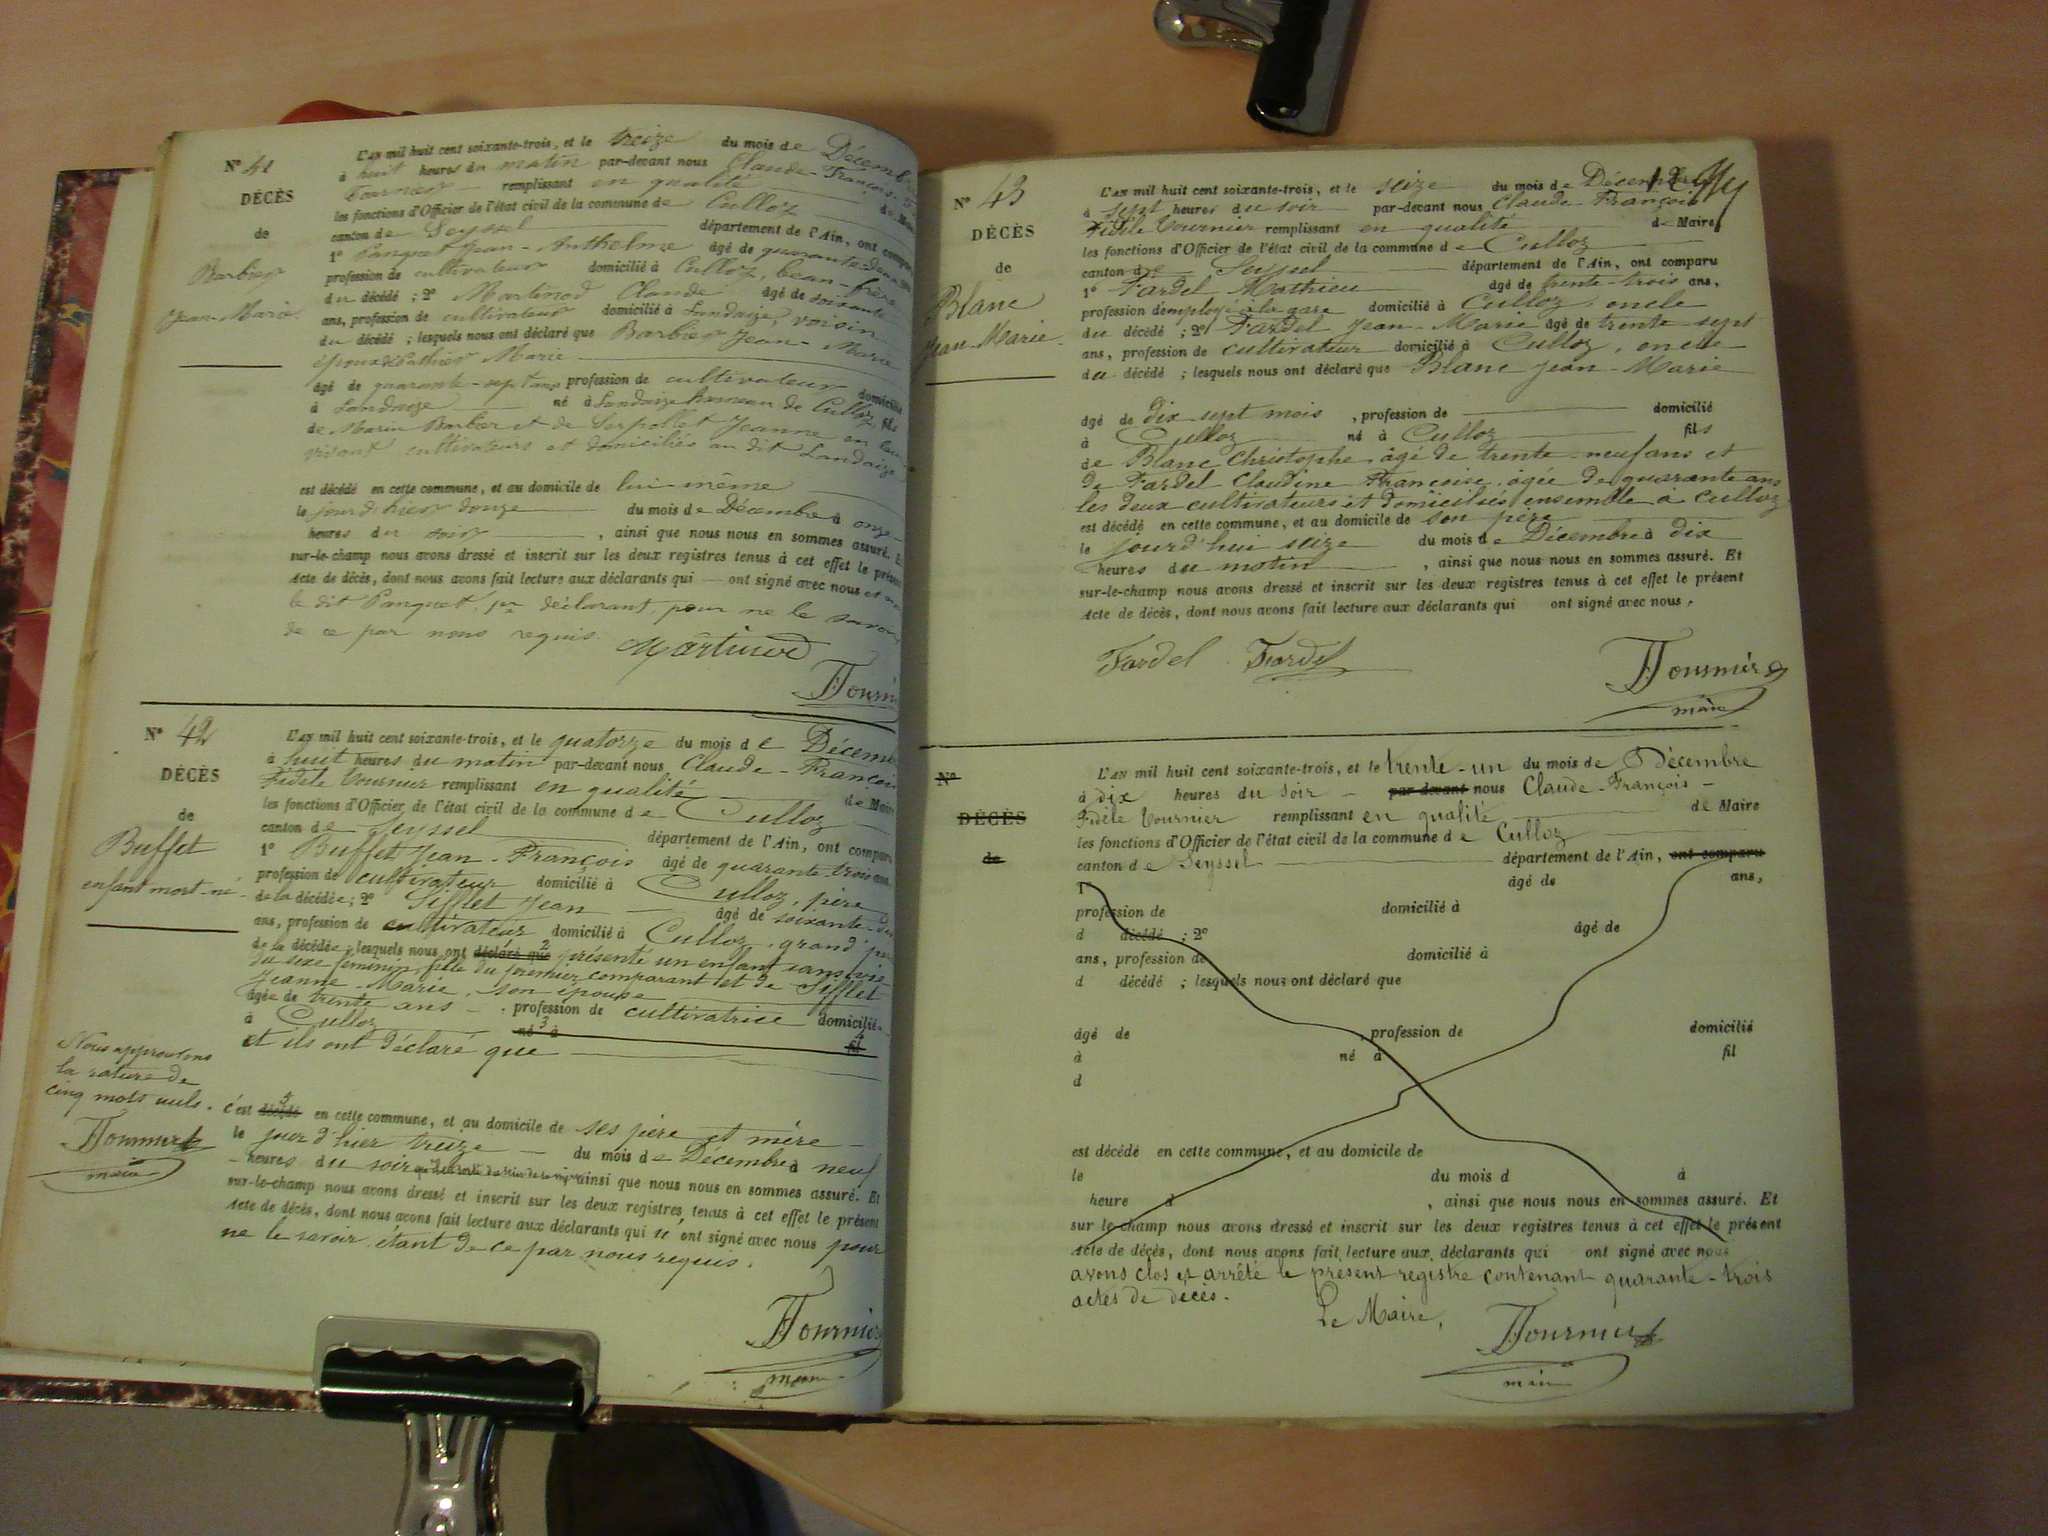 N° 41
DÉCÈS
de
Barbier
Jean-Marie
L'AN mil huit cent soixante-trois, et le treize du mois de Décembre
à huit heures du matin par-devant nous Claude-François-
Tournier remplissant en qualité de Maire
les fonctions d'Officier de l'état civil de la commune de Culloz
canton de Seyssel département de l'Ain, ont comparu
1° Panquet Jean-Anthelme âgé de quarante-deux
profession de cultivateur domicilié à Culloz, beau-frère
du décédé ; 2° Martinod Claude âgé de soixante
ans, profession de cultivateur domicilié à Landaize, voisin
du décédé ; lesquels nous ont déclaré que Barbier Jean-Marie
époux de Marie
âgé de quarante-sept ans profession de cultivateur domicilié
à Landaize né à Landaize hameau de Culloz fils
de Marin Barbier et de Serpollet Jeanne en leur
vivant cultivateurs et domiciliés au dit Landaize
est décédé en cette commune, et au domicile de lui-même
le jour d'hier douze du mois de Décembre à onze
heures du soir , ainsi que nous nous en sommes assuré. Et
sur-le-champ nous avons dressé et inscrit sur les deux registres tenus à cet effet le présent
acte de décès, dont nous avons fait lecture aux déclarants qui — ont signé avec nous et non
le dit Panquet, 1er déclarant, pour ne le savoir
de ce par nous requis.
Martinod
Tournier
N° 42
DÉCÈS
de
Buffet
enfant mort-né
L'AN mil huit cent soixante-trois, et le quatorze du mois de Décembre
à huit heures du matin par-devant nous Claude-François
Fidèle Tournier remplissant en qualité de Maire
les fonctions d'Officier de l'état civil de la commune de Culloz
canton de Seyssel département de l'Ain, ont comparu
1° Buffet Jean-François âgé de quarante-trois ans,
profession de cultivateur domicilié à Culloz, père
de la décédée ; 2° Sifflet Jean âgé de soixante-dix
ans, profession de cultivateur domicilié à Culloz, grand'père
de la décédée ; lesquels nous ont déclaré que 2 présenté un enfant sans vie
du sexe féminin, fille du premier comparant et de Sifflet
Jeanne-Marie, son épouse
âgée de trente ans profession de cultivatrice domiciliée
à Culloz né 3 à fil
et ils ont déclaré que
Nous approuvons
la rature de
cinq mots nuls.
Tournier
maire
c'est décédé 5 en cette commune, et au domicile de ses père et mère
le jour d'hier treize du mois de Décembre à neuf
heures du soir ainsi que nous nous en sommes assuré. Et
sur-le-champ nous avons dressé et inscrit sur les deux registres tenus à cet effet le présent
acte de décès, dont nous avons fait lecture aux déclarants qui n'ont signé avec nous pour
ne le savoir étant de ce par nous requis.
Tournier
maire
N° 43
DÉCÈS
de
Blanc
Jean-Marie
L'AN mil huit cent soixante-trois, et le seize du mois de Décembre
à sept heures du soir par-devant nous Claude-François
Fidèle Tournier remplissant en qualité de Maire
les fonctions d'Officier de l'état civil de la commune de Culloz
canton de Seyssel département de l'Ain, ont comparu
1° Fardel Mathieu âgé de trente-trois ans,
profession d'employé à la gare domicilié à Culloz, oncle
du décédé ; 2° Fardel Jean-Marie âgé de trente sept
ans, profession de cultivateur domicilié à Culloz, oncle
du décédé ; lesquels nous ont déclaré que Blanc Jean-Marie
âgé de dix sept mois , profession de domicilié
à Culloz né à Culloz fils
de Blanc Christophe, âgé de trente-neuf ans et
de Fardel Claudine Françoise, âgée de quarante ans
les deux cultivateurs et domiciliés ensemble à Culloz
est décédé en cette commune, et au domicile de son père
le jourd'hui seize du mois de Décembre à dix
heures du matin , ainsi que nous nous en sommes assuré. Et
sur-le-champ nous avons dressé et inscrit sur les deux registres tenus à cet effet le présent
acte de décès, dont nous avons fait lecture aux déclarants qui ont signé avec nous.
Fardel Fardel
Tournier
maire
N°
DÉCÈS
de
L'AN mil huit cent soixante-trois, et le trente-un du mois de Décembre
à dix heures du soir par-devant nous Claude-François-
Fidèle Tournier remplissant en qualité de Maire
les fonctions d'Officier de l'état civil de la commune de Culloz
canton de Seyssel département de l'Ain, ont comparu
1° âgé de ans,
profession de domicilié à
d décédé ; 2° âgé de
ans, profession de domicilié à
d décédé ; lesquels nous ont déclaré que
âgé de , profession de domicilié
à né à fil
d
est décédé en cette commune, et au domicile de
le du mois d à
heure d , ainsi que nous nous en sommes assuré. Et
sur le champ nous avons dressé et inscrit sur les deux registres tenus à cet effet le présent
acte de décès, dont nous avons fait lecture aux déclarants qui ont signé avec nous
avons clos et arrêté le présent registre contenant quarante-trois
actes de décès.
Le Maire,
Tournier
maire